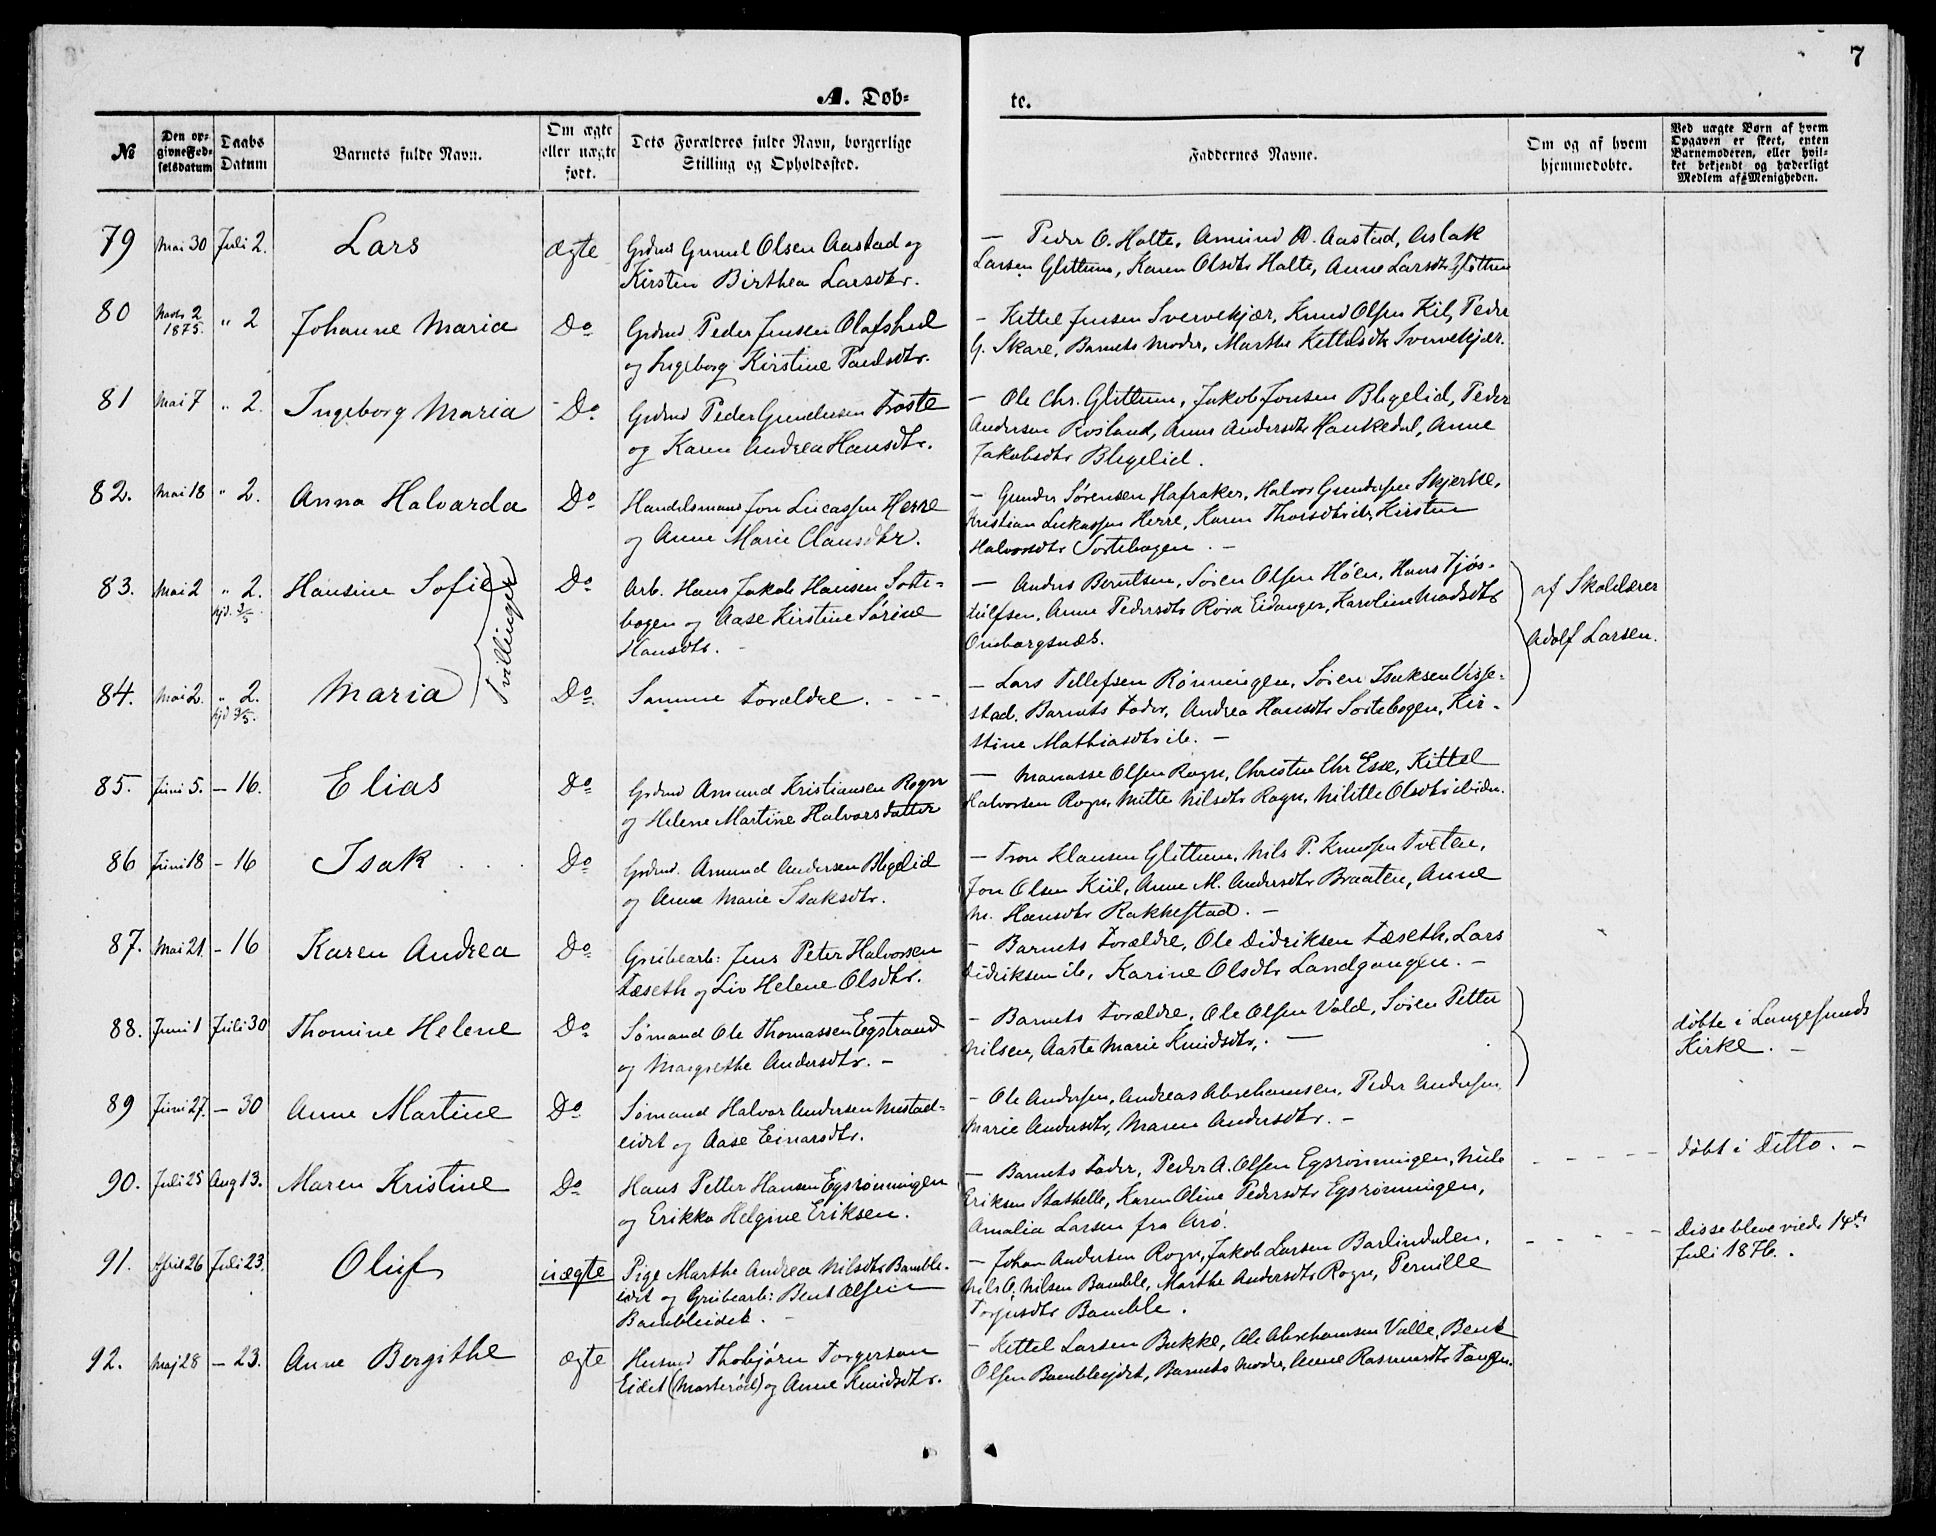 7
A. Døb=
te.
№
Den op=
givne Fød=
selsdatum
Daabs
Datum
Barnets fulde Navn.
Om ægte
eller uægte
født.
Dets Forældres fulde Navn, borgerlige
Stilling og Opholdssted.
Faddernes Navne.
Om og af hvem
hjemmedøbte.
Ved uægte Børn af hvem
Opgaven er skeet, enten
Barnemoderen, eller hvil=
ket bekjendt og hæderligt
Medlem af Menigheden.
79 Mai 30 Juli 2. Lars ægte
Grdmd Olsen Aastad og
Kirsten Birthea Larsdtr.
– Peder O. Halte, Amund O. Aastad, Aslak
Larsen Glittum, Karen Olsdtr Halte, Anne Larsdtr Glittum
80 2 1875. " 2 Johanne Maria Do
Grdmd Peder Jensen Olafshul
og Ingeborg Kirstine Paulsdtr.
– Kittel Jensen Svervekjær, Knud Olsen Kil, Peder
G. Skare, Barnets Moder, Marthe Kittilsdtr Svervekjær.
81 Mai 7 " 2. Ingeborg Maria Do
Grdmd Peder Gundersen Troste
og Karen Andrea Hansdtr.
– Ole Chr. Glittum, Jakob Jonsen Blegelid, Peder
Andersen Rosland, Anne Andersdtr Hankedal, Anne
Jakobsdtr Blegelid.
82. Mai 18 " 2. Anna Halvarda Do
Handelsmand Jon Lucassen Herre
og Anne Marie Clausdtr.
– Gunder Sørensen Hafraker, Halvor Gundersen Skjerke,
Kristian Lukassen Herre, Karen Thorsdtr ib, Kirsten
Halvorsdtr Sortebogen. –
83. Mai 2 " 2. Hansine Sofie Do
hjd. 3/5.
Tvillinger
Arb. Hans Jakob Hansen Sorte-
bogen og Aase Kirstine Sørine
Hansdtr. –
– Anders Berntsen, Søren Olsen Høen, Hans Tjøs-
tulfsen, Anne Pedersdtr Røra Eidanger, Karoline Madsdtr
Ombargsnæs.
af Skolelærer
Adolf Larsen.
84. Mai 2. " 2. Maria Do
hjd 3/5.
Samme Forældre. - -
– Lars Tellefsen Rønningen, Søren Isaksen Visse-
stad, Barnets Fader, Andrea Hansdtr Sortebogen, Kir-
stine Mathiasdtr ib. –
85. Juni 5. – 16. Elias Do
Grdmd Amund Kristiansen Rogn
og Helene Martine Halvorsdatter
– Manasse Olsen Rogn, Christen Chr Esse, Kittel
Halvorsen Rogn, Mitte Nilsdtr Rogn, Olsdtr ibiden.
86 Juni 18 – 16 Isak Do
Grdmd. Amund Andersen Blegelid
og Anne Marie Isaksdtr.
– Tron Klausen Glittum, Nils P. Knudsen Tveten,
Jon Olsen Kiil, Anne M. Andersdtr Braaten, Anne
M. Hansdtr Rakkestad. –
87. Mai 21. – 16 Karen Andrea Do
Grubearb: Jens Peter Halvorsen
Fæseth og Liv Helene Olsdtr.
– Barnets Forældre, Ole Didriksen Fæseth, Lars
Didriksen ib, Karine Olsdtr Landgangen. –
88. Juni 1 Juli 30 Thomine Helene Do
Sømand Ole Thomassen Egstrand
og Margrethe Andersdtr. –
– Barnets Forældre, Ole Olsen Vold, Søren Petter
Nilsen, Aaste Marie Knudsdtr. –
døbte i Langesunds
Kirke. –
89 Juni 27. – 30 Anne Martine Do
Sømand Halvor Andersen Mustad-
eidet og Aase Einarsdtr.
– Ole Andersen, Andreas Abrahamsen, Peder Andersen,
Marie Andersdtr, Maren Andersdtr. –
90. Juli 25 Aug 13. Maren Kristine Do
Hans Petter Hansen Egsrønningen
og Erikka Helgine Eriksen.
– Barnets Fader, Peder A. Olsen Egsrønningen, Nils
Eriksen Stathelle, Karen Oline Pedersdtr Egsrønningen,
Amalia Larsen fra Arø.
døbt i Ditto. –
91. April 26 Juli 23. Oluf uægte
Pige Marthe Andrea Nilsdtr Bamble-
eidet og Grubearb: Bent Olsen
Bambleeidet. –
– Johan Andersen Rogn, Jakob Larsen Barlindalen,
Nils O. Nilsen Bamble, Marthe Andersdtr Rogn, Pernille
Torjusdtr Bamble.
Disse bleve viede 14de
Juli 1876.
92. Maj 28 – 23. Anne Bergithe ægte
Husmd Thobjørn Torgersen
Eidet (Marterød) og Anne Knudsdtr.
– Kittel Larsen Bukke, Ole Abrahamsen Valle, Bent
Olsen Bambleejdet, Barnets Moder, Anne Rasmusdtr Tangen.